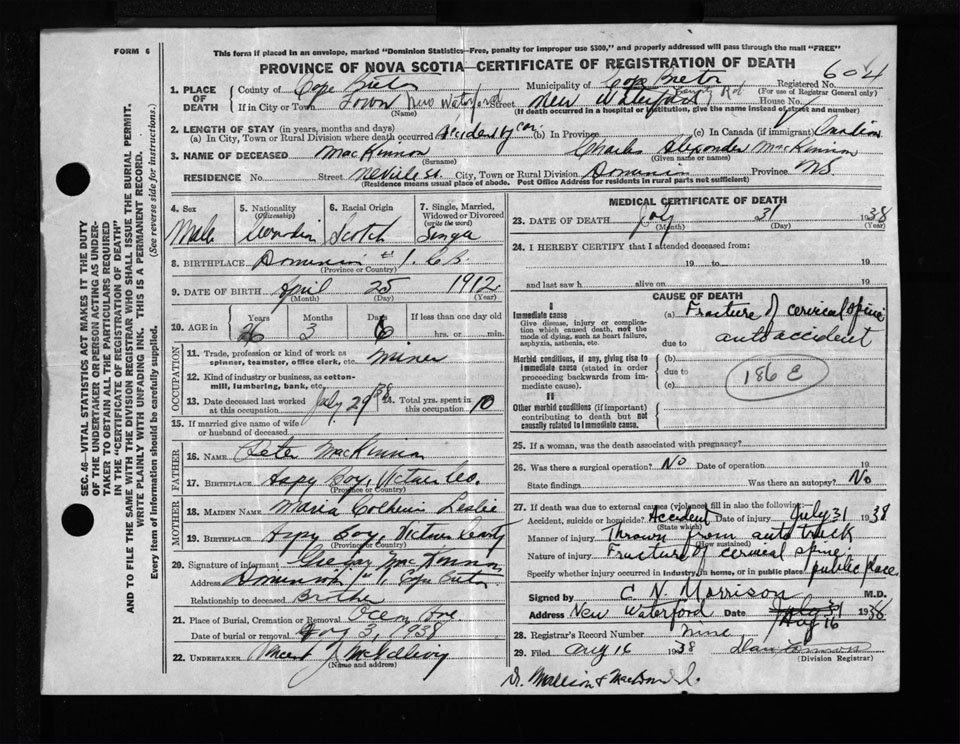 FORM 6
This form if placed in an envelope, marked "Dominion Statistics—Free, penalty for improper use $300," and properly addressed will pass through the mail "FREE"
PROVINCE OF NOVA SCOTIA—CERTIFICATE OF REGISTRATION OF DEATH
604
1. PLACE OF DEATH
County of Cape Breton Municipality of Cape Breton Registered No.
(For use of Registrar General only)
If in City or Town Town New Waterford Street New Waterford House No.
(Name) (If death occurred in a hospital or institution, give the name instead of street and number)
2. LENGTH OF STAY (in years, months and days)
(a) In City, Town or Rural Division where death occurred Accident by car (b) In Province (c) In Canada (if immigrant)
3. NAME OF DECEASED MacKinnon Charles Alexander MacKinnon
(Surname) (Given name or names)
RESIDENCE No. Street Neville St. City, Town or Rural Division Dominion Province N.S.
(Residence means usual place of abode. Post Office Address for residents in rural parts not sufficient)
4. Sex
Male
5. Nationality (Citizenship)
Canadian
6. Racial Origin
Scotch
7. Single, Married, Widowed or Divorced (write the word)
Single
8. BIRTHPLACE Dominion #1 C.B.
(Province or Country)
9. DATE OF BIRTH April 25 1912
(Month) (Day) (Year)
10. AGE in Years Months Days If less than one day old
26 3 6 hrs. or min.
OCCUPATION
11. Trade, profession or kind of work as spinner, teamster, office clerk, etc. miner
12. Kind of industry or business, as cotton-mill, lumbering, bank, etc.
13. Date deceased last worked at this occupation July 29 38 14. Total yrs. spent in this occupation 10
15. If married give name of wife or husband of deceased
FATHER
16. NAME Peter MacKinnon
17. BIRTHPLACE Aspy Bay, Victoria Co.
(Province or Country)
MOTHER
18. MAIDEN NAME Leslie
19. BIRTHPLACE Aspy Bay, Victoria County
(Province or Country)
20. Signature of informant MacKinnon
Address Dominion #1 Cape Breton
Relationship to deceased Brother
21. Place of Burial, Cremation or Removal
Date of burial or removal Aug 3, 1938
22. UNDERTAKER Vincent J. McGillivray
(Name and address)
MEDICAL CERTIFICATE OF DEATH
23. DATE OF DEATH July 31 1938
(Month) (Day) (Year)
24. I HEREBY CERTIFY that I attended deceased from:
19 to 19
and last saw h alive on 19
CAUSE OF DEATH
I
Immediate cause
Give disease, injury or complication which caused death, not the mode of dying, such as heart failure, asphyxia, asthenia, etc.
(a) Fracture of cervical spine
due to auto accident
Morbid conditions, if any, giving rise to immediate cause (stated in order proceeding backwards from immediate cause).
(b)
due to
(c)
186 E
II
Other morbid conditions (if important) contributing to death but not causally related to immediate cause.
25. If a woman, was the death associated with pregnancy?
26. Was there a surgical operation? No Date of operation 19
State findings Was there an autopsy? No
27. If death was due to external causes (violence) fill in also the following:
Accident, suicide or homicide? Accident Date of injury July 31 1938
(State which)
Manner of injury Thrown from auto truck
(How sustained)
Nature of injury Fracture of cervical spine
Specify whether injury occurred in Industry, in home, or in public place public place
Signed by C. N. Morrison M.D.
Address New Waterford Date July 31 Aug 16 1938
28. Registrar's Record Number nine
29. Filed Aug 16 1938 Dan
(Division Registrar)
SEC. 46—VITAL STATISTICS ACT MAKES IT THE DUTY
OF THE UNDERTAKER OR PERSON ACTING AS UNDER-
TAKER TO OBTAIN ALL THE PARTICULARS REQUIRED
IN THE "CERTIFICATE OF REGISTRATION OF DEATH"
AND TO FILE THE SAME WITH THE DIVISION REGISTRAR WHO SHALL ISSUE THE BURIAL PERMIT.
WRITE PLAINLY WITH UNFADING INK. THIS IS A PERMANENT RECORD.
Every item of information should be carefully supplied. (See reverse side for instructions.)